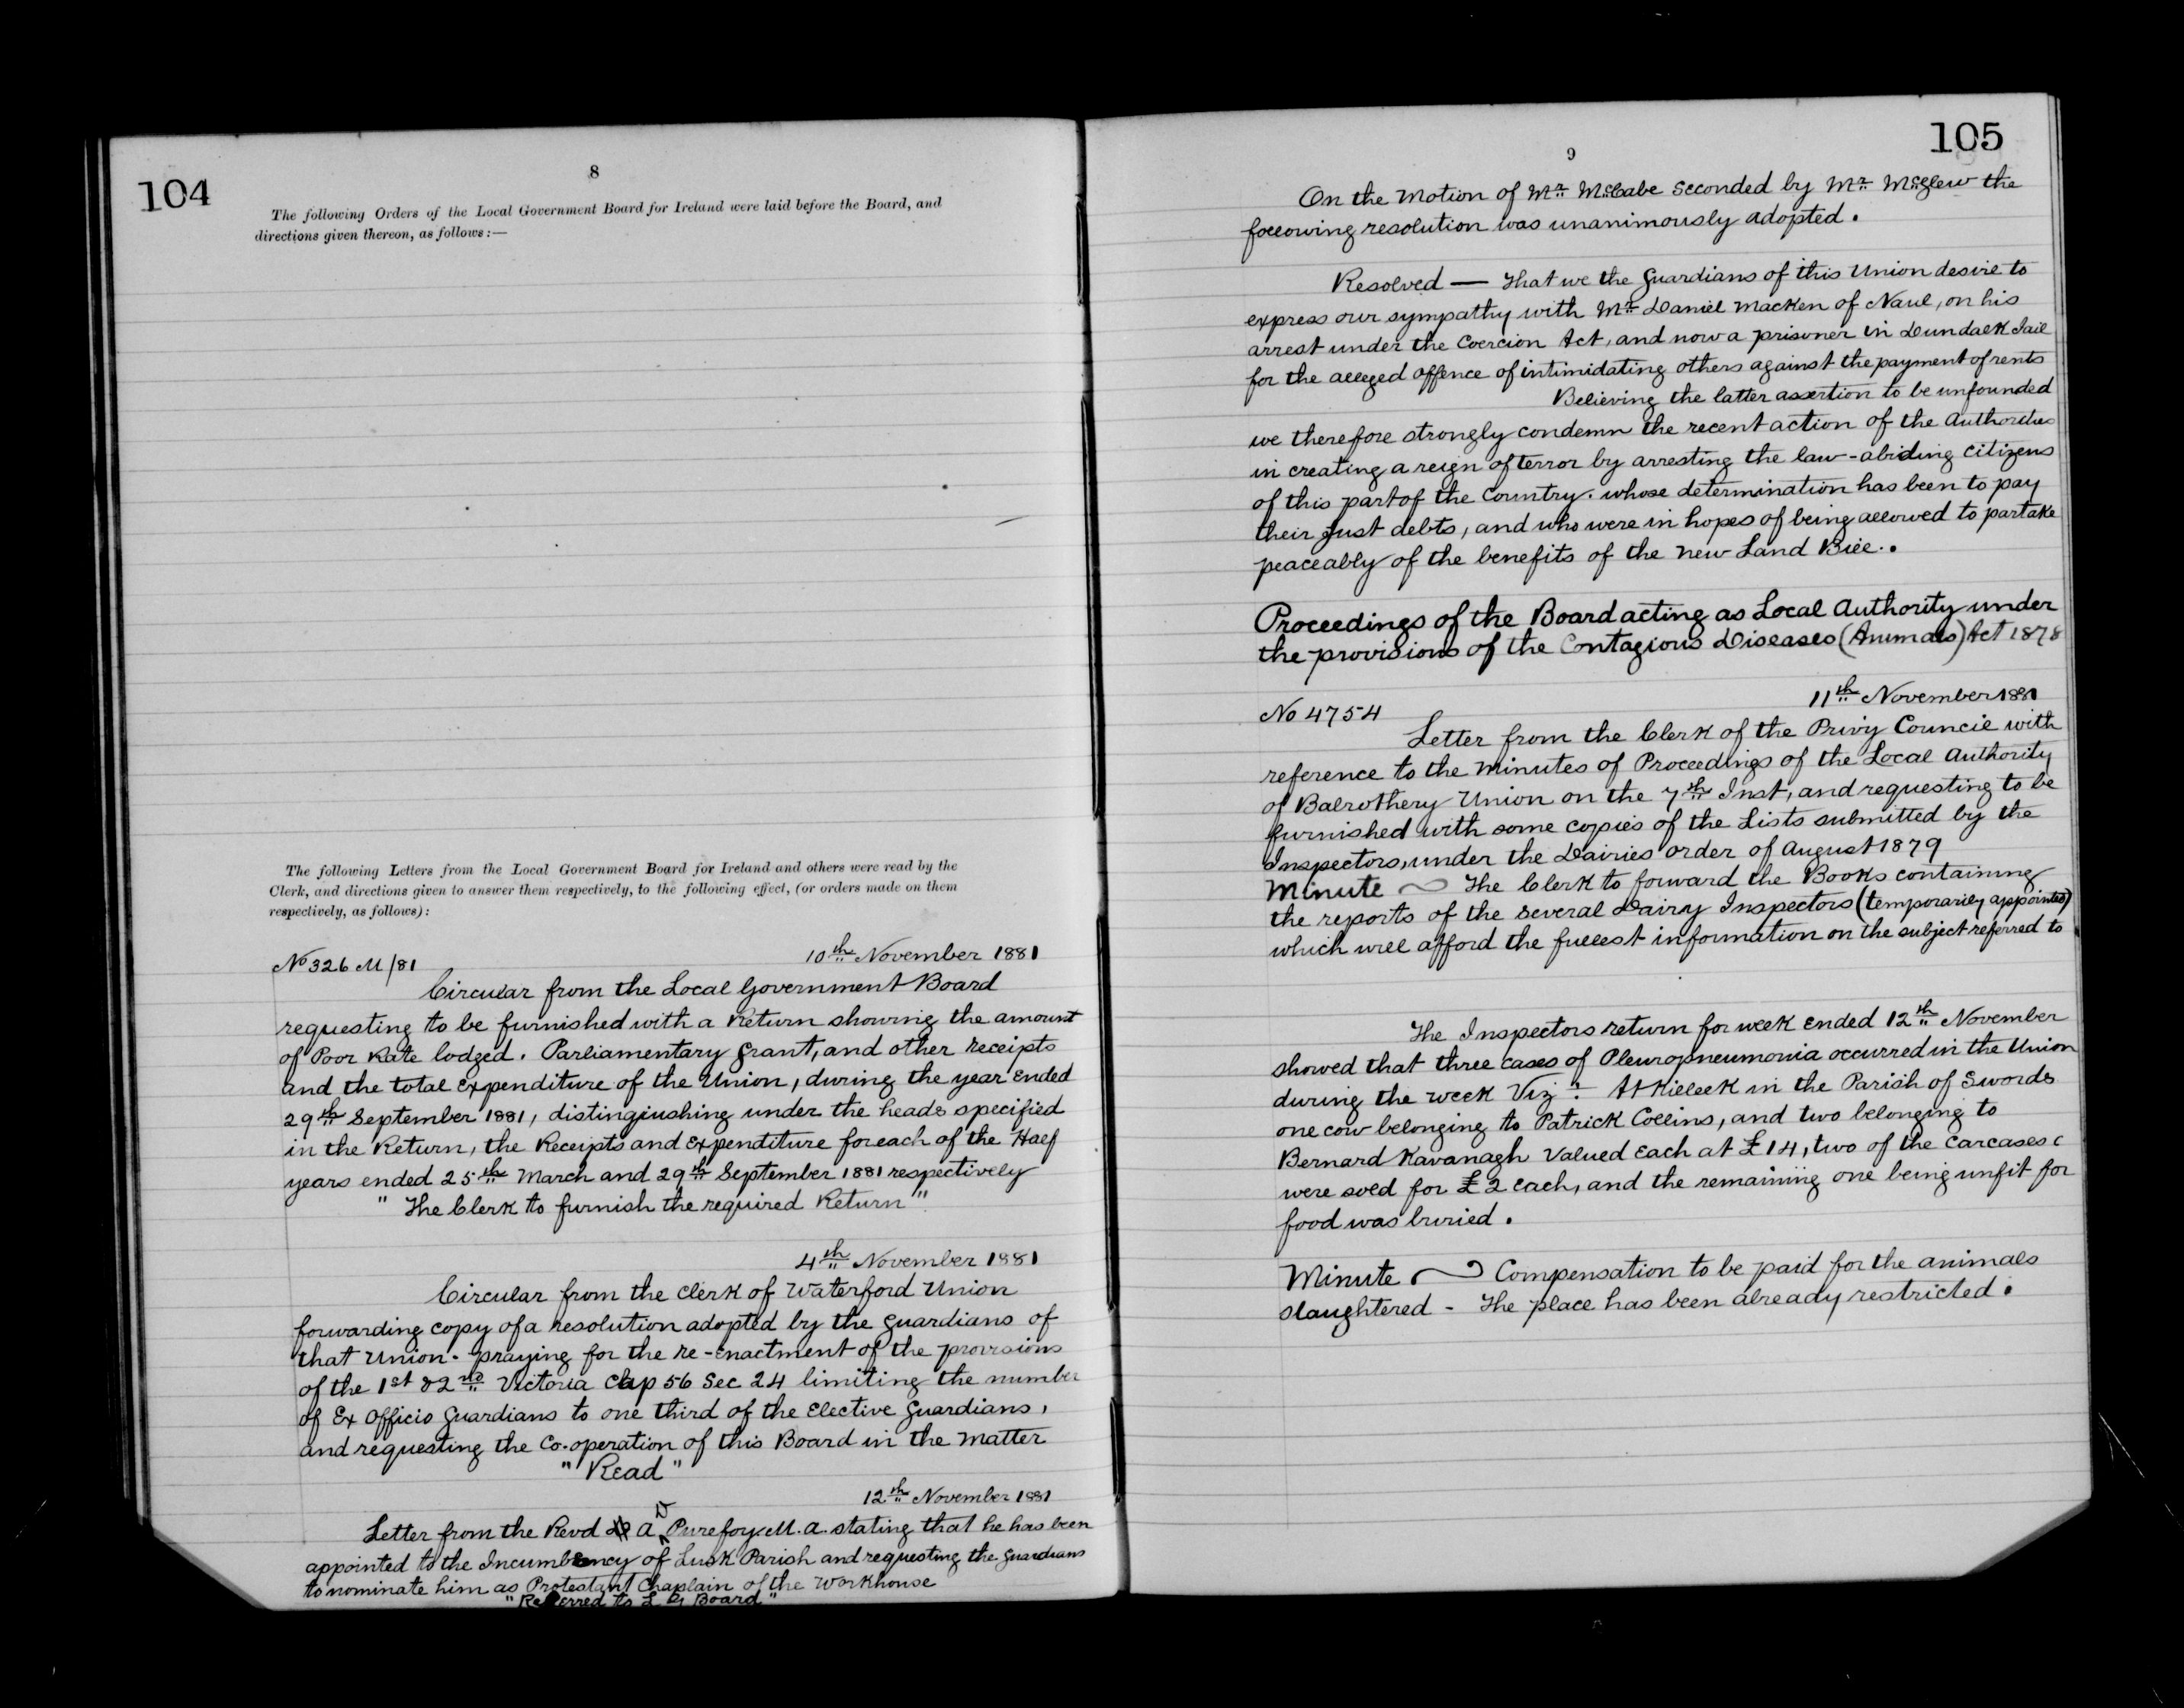 104
8
The following Orders of the Local Government Board for Ireland were laid before the Board, and
directions given thereon, as follows:—
The following Letters from the Local Government Board for Ireland and others were read by the
Clerk, and directions given to answer them respectively, to the following effect, (or orders made on them
respectively, as follows):
No 326 M/81 10th November 1881
Circular from the Local Government Board
requesting to be furnished with a Return showing the amount
of Poor Rate lodged. Parliamentary Grant, and other receipts
and the total Expenditure of the Union, during the year Ended
29th September 1881, distingiushing under the heads specified
in the Return, the Receipts and Expenditure for each of the Half
years ended 25th March and 29th September 1881 respectively
"The Clerk to furnish the required Return"
4th November 1881
Circular from the Clerk of Waterford Union
forwarding copy of a resolution adopted by the Guardians of
that Union. praying for the re-enactment of the provisions
of the 1st & 2nd Victoria Chap 56 Sec 24 limiting the number
of Ex Officio Guardians to one third of the Elective Guardians,
and requesting the Co-operation of this Board in the Matter
"Read"
12th November 1881
Letter from the Revd A D Purefoy M.A. stating that he has been
appointed to the Incumbency of Lusk Parish and requesting the Guardians
to nominate him as Protestant Chaplain of the Workhouse
"Referred to L G Board"
105
9
On the Motion of Mr McCabe Seconded by Mr McGlew the
following resolution was unanimously adopted.
Resolved — That we the Guardians of this Union desire to
express our sympathy with Mr Daniel Macken of Naul, on his
arrest under the Coercion Act, and now a prisoner in Dundalk Jail
for the alleged offence of intimidating others against the payment of rents
Believing the latter assertion to be unfounded
we therefore strongly condemn the recent action of the Authorities
in creating a reign of terror by arresting the law-abiding Citizens
of this part of the Country. whose determination has been to pay
their just debts, and who were in hopes of being allowed to partake
peaceably of the benefits of the new Land Bill.
Proceedings of the Board acting as Local Authority under
the provisions of the Contagious Diseases (Animals) Act 1878
No 4754 11th November 1881
Letter from the Clerk of the Privy Council with
reference to the Minutes of Proceedings of the Local Authority
of Balrothery Union on the 7th Inst, and requesting to be
furnished with some copies of the Lists submitted by the
Inspectors, under the Dairies order of August 1879
Minute ~ The Clerk to forward the Books containing
the reports of the several Dairy Inspectors (temporarily appointed)
which will afford the fullest information on the subject referred to
The Inspectors return for week Ended 12th November
showed that three cases of Pleuropneumonia occurred in the Union
during the week Viz: At Killeek in the Parish of Swords
one cow belonging to Patrick Collins, and two belonging to
Bernard Kavanagh Valued Each at £14, two of the Carcases
were sold for £2 Each, and the remaining one being unfit for
food was buried.
Minute ~ Compensation to be paid for the animals
slaughtered - The place has been already restricted.